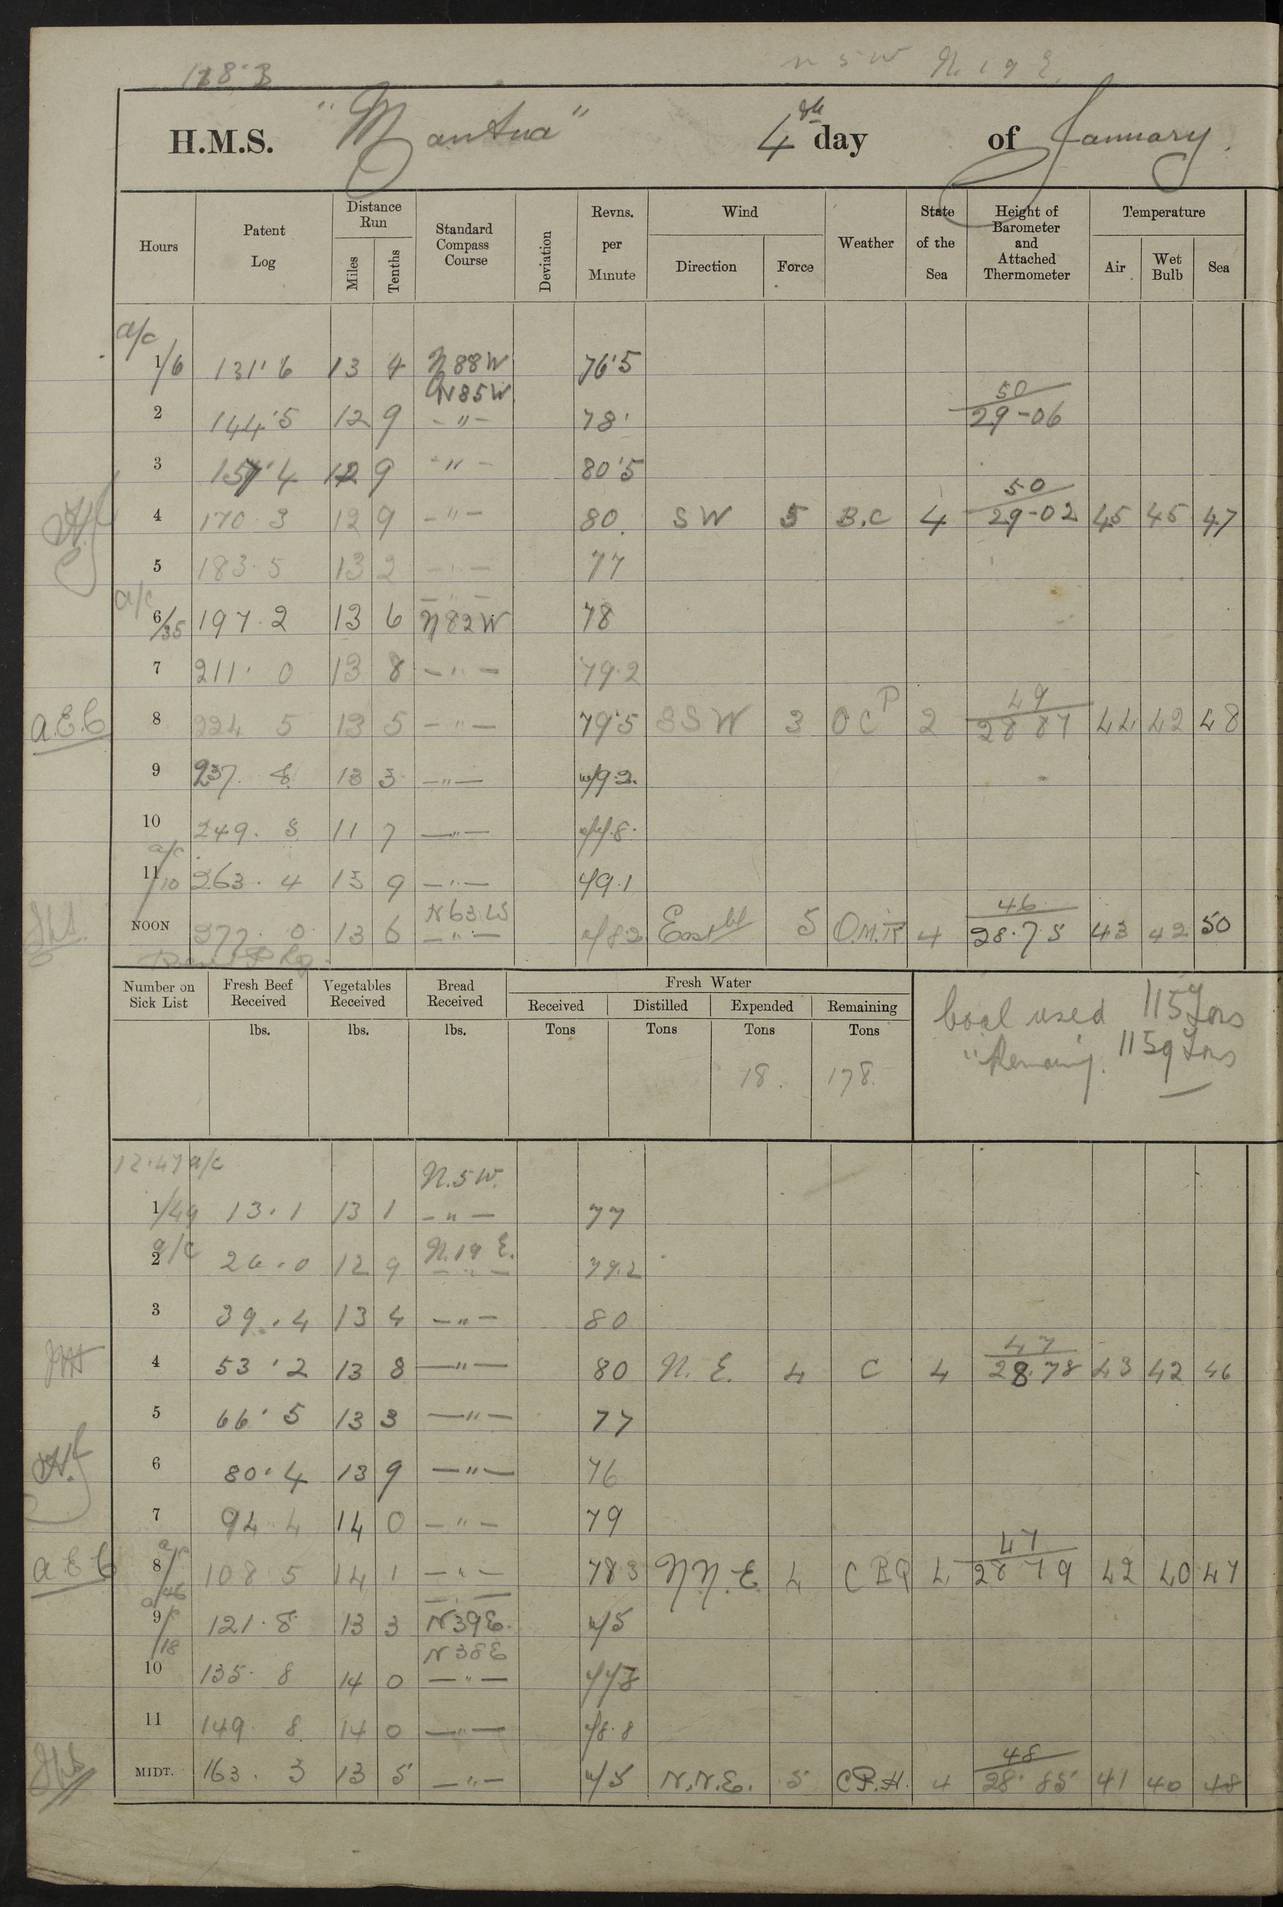 118.3 N 5 W N. 19 E.
H.M.S. "Mantua" 4th day of January.
Hours Patent Log Distance Run Miles Tenths Standard Compass Course Deviation Revns. per Minute Wind Direction Force Weather State of the Sea Height of Barometer and Attached Thermometer Temperature Air Wet Bulb Sea
a/c
1/6 131.6 13 4 N88W 76.5
N85W 50
2 144.5 12 9 -"- 78. 29-06
3 157.4 12 9 -"- 80.5
50
4 170.3 12 9 -"- 80. SW 5 B.C 4 29-02 45 45 47
5 183.5 13 2 -"- 77
a/c -"-
6/35 197.2 13 6 N82W 78
7 211.0 13 8 -"- 79.2
49
A.E.C 8 224 5 13 5 -"- 79.5 SSW 3 OCP 2 28 87 44 42 48
9 237. 8 13 3 -"- 79.2.
10 249. 5 11 7 -"- 77.8.
a/c
11/10 263. 4 13 9 -"- 79.1
N63W 46
NOON 277. 0 13 6 -"- 78.2 East 5 O.M.R 4 28.75 43 42 50
Number on Sick List Fresh Beef Received Vegetables Received Bread Received Fresh Water
Received Distilled Expended Remaining
lbs. lbs. lbs. Tons Tons Tons Tons
18. 178.
Coal used 115 Tons
" Remaing. 1159 Tons
12.47 a/c N.5W.
1/49 13.1 13 1 -"- 77
a/c N.19 E.
2 26.0 12 9 -"- 79.2
3 39.4 13 4 -"- 80
47
4 53.2 13 8 -"- 80 N.E. 4 C 4 28.78 43 42 46
5 66.5 13 3 -"- 77
6 80.4 13 9 -"- 76
7 94.4 14 0 -"- 79
a/c 47
A E C 8/46 108 5 14 1 -"- 783 NN.E. 4 C P Q 4 28 79 42 40 47
a/c -"-
9/18 121.8 13 3 N39E. 75
N38E
10 135. 8 14 0 -"- 778
11 149. 8 14 0 -"- 78.8
48
MIDT. 163. 3 13 5 -"- 75 N.N.E. 5 CP.H. 4 28.85 41 40 48